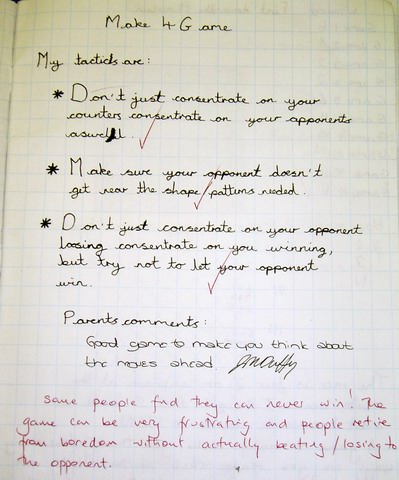 Make 4 Game
My tactics are:
* Don't just consentrate on your
counters consentrate on your opponents
aswell.
* Make sure your opponent doesn't
get near the shape patterns needed.
* Don't just consentrate on your opponent
loosing consentrate on you winning,
but try not to let your opponent
win.
Parents comments:
Good game to make you think about
the moves ahead.
Some people find they can never win! The
game can be very frustrating and people retire
from boredom without actually beating / losing to
the opponent.